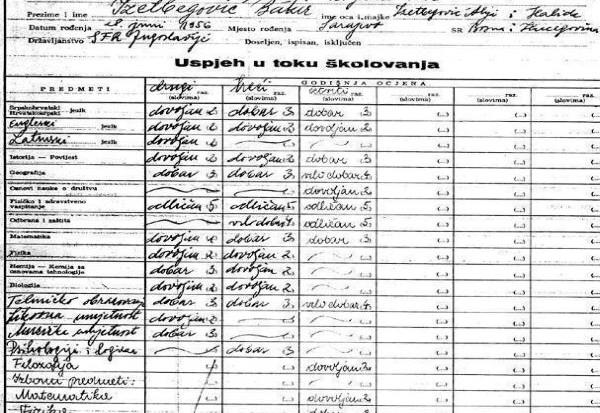 Prezime i ime Izetbegović Bakir ime oca i majke Izetbegović Alij i Halide
Datum rođenja 28. juni 1956 Mjesto rođenja Sarajevo SR Bosna i Hercegovina
Državljanstvo SFR Jugoslavije Doseljen, ispisan, isključen
Uspjeh u toku školovanja
PREDMETI GODIŠNJA OCJENA
drugi raz. treći raz. četvrti raz. raz. raz. raz.
(slovima) (slovima) (slovima) (slovima) (slovima) (slovima)
Srpskohrvatski
Hrvatskosrpski jezik dovoljan 2 dobar 3 dobar 3 (...) (...) (...)
Engleski jezik dovoljan 2 dovoljan 2 dovoljan 2 (...) (...) (...)
Latinski jezik dovoljan 2 (...) (...) (...)
Istorija — Povijest dovoljan 2 dovoljan 2 dobar 3 (...) (...) (...)
Geografija dobar 3 dobar 3 vrlo dobar 4 (...) (...) (...)
Osnovi nauke o društvu dovoljan 2 (...) (...) (...)
Fizičko i zdravstveno
vaspitanje odličan 5 odličan 5 odličan 5 (...) (...) (...)
Odbrana i zaštita vrlo dobar 4 odličan 5 (...) (...) (...)
Matematika dovoljan 2 dobar 3 dobar 3 (...) (...) (...)
Fizika dovoljan 2 dovoljan 2 (...) (...) (...)
Hemija — Kemija sa
osnovama tehnologije dobar 3 dovoljan 2 (...) (...) (...)
Biologija dovoljan 2 dovoljan 2 (...) (...) (...)
Tehničko obrazovanje dobar 3 dobar 3 vrlo dobar 4 (...) (...) (...)
Likovna umjetnost dovoljan 2 (...) (...) (...)
Muzička umjetnost dobar 3 (...) (...) (...)
Psihologija i logika dobar 3 (...) (...) (...)
Filozofija dovoljan 2 (...) (...) (...)
Izborni predmeti: (...) (...) (...)
Matematika dovoljan 2 (...) (...) (...)
Fizika dobar 3